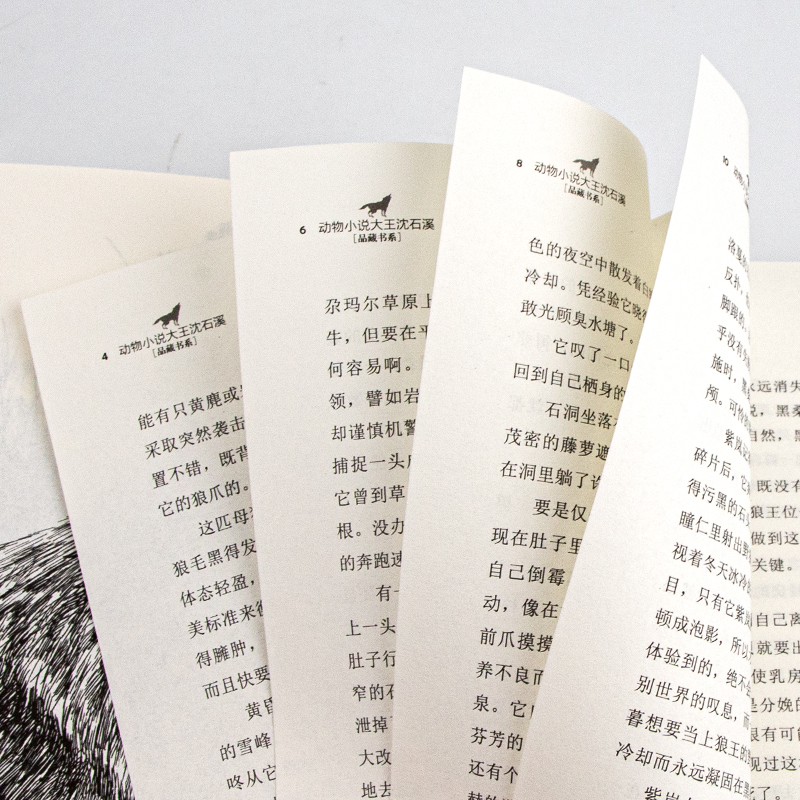 4 动物小说大王沈石溪
[品藏书系]
能有只黄麂或
采取突然袭击
置不错，既背
它的狼爪的。
这匹母
狼毛黑得发
体态轻盈，
美标准来
得臃肿，
而且快要
黄昏
的雪峰
咚从它
6 动物小说大王沈石溪
[品藏书系]
尕玛尔草原上
牛，但要在平
何容易啊。
领，譬如岩
却谨慎机警
捕捉一头
它曾到草
根。没办
的奔跑速
有一
上一头
肚子行
窄的石
泄掉
大改
地去
8 动物小说大王沈石溪
[品藏书系]
色的夜空中散发着白
冷却。凭经验它晓得
敢光顾臭水塘了。
它叹了一口
回到自己栖身的
石洞坐落
茂密的藤萝遮
在洞里躺了许
要是仅
现在肚子里
自己倒霉
动，像在
前爪摸摸
养不良而
泉。它
芬芳的
还有个
10 动物小说大
[品藏
洛戛
反扑，
脚跟的
乎没有
施时，
颅。可怜
紫岚
碎片后，它
得污黑的石
瞳仁里射出
视着冬天冰冷
目，只有它紫岚
顿成泡影，所以
体验到的，绝不
别世界的叹息，而
暮想要当上狼王的
冷却而永远凝固在黑
紫岚
永远消失
说，黑桑
自然，黑
既没有
狼王位
做到这
关键。
自己离
就要出
使乳房
是分娩的
很有可能
见过这
死了。